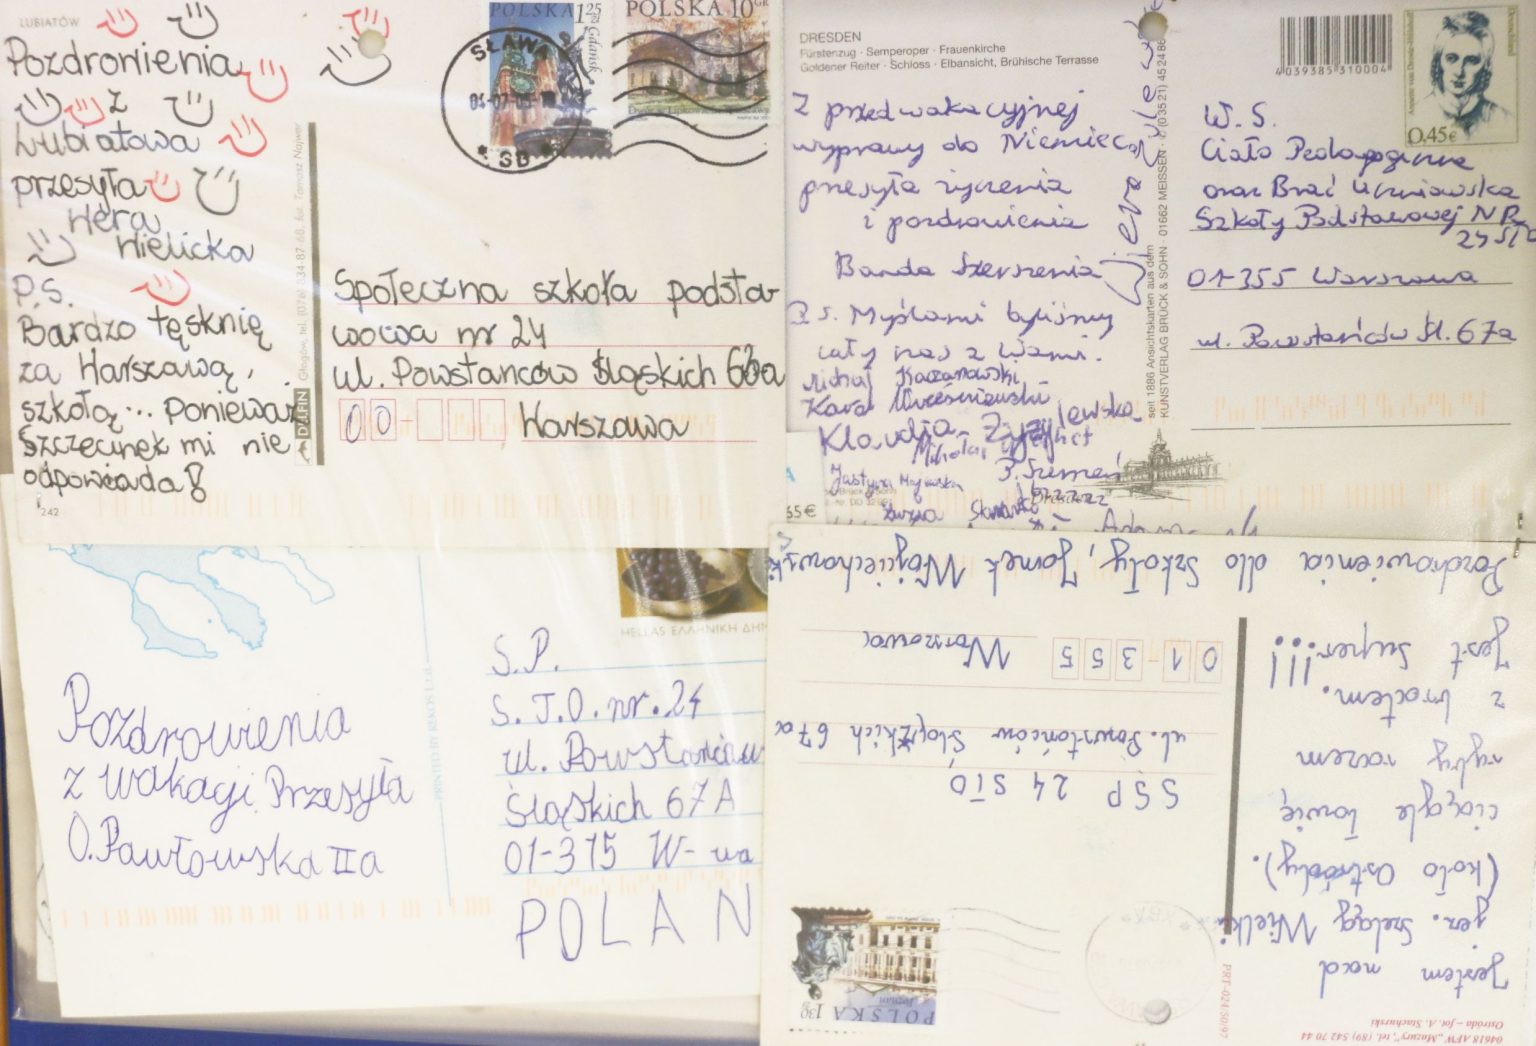 LUBIATÓW
Pozdrowienia
z
Lubiatowa
przesyła
Wera
Wielicka
P.S.
Bardzo tęsknię
za Warszawą,
szkołą... ponieważ
Szczecinek mi nie
odpowiada!
242
DU.FIN
Głogów, tel. (076) 834-87-68, fot. Tomasz Najwer
POLSKA 1 25 zł
Gdańsk
POLSKA 10 GR
SŁAWA
SB
Społeczna szkoła podsta-
wowa nr 24
ul. Powstańców Śląskich 63a
00- Warszawa
DRESDEN
Fürstenzug · Semperoper · Frauenkirche
Goldener Reiter · Schloss · Elbansicht, Brühlsche Terrasse
4 039385 310004
0,45€
Z przedwakacyjnej
wyprawy do Niemiec
przesyła życzenia
i pozdrowienia
Banda Szerszenia
P.s. Myślami byliśmy
cały czas z Wami.
Michał Kaczanowski
Klaudia
Mikołaj
Justyna
seit 1886 Ansichtskarten aus dem
KUNSTVERLAG BRÜCK & SOHN · 01662 MEISSEN
W. S.
Ciało Pedagogiczne
oraz Brać Uczniowska
Szkoły Podstawowej NR
24 STO
01-355 Warszawa
ul. Powstańców Śl. 67a
55€
HELLAS ΕΛΛΗΝΙΚΗ ΔΗΜ
Pozdrowienia
z wakacji Przesyła
O. Pawłowska IIa
PRINTED BY REKOS Ltd
S.P.
S.T.O. nr. 24
ul. Powstańców
Śląskich 67A
01-315 W-wa
POLAN
04618 AFW „Mazury”, tel. (89) 542 70 44
Ostróda – fot. A. Stachurski
PRT-024/50/97
Jestem nad
jez. Szeląg Wielki
(koło Ostródy).
ciągle łowię
ryby razem
z bratem.
Jest super!!!
Pozdrowienia dla szkoły, Jomek Wojciechowski
POLSKA 1 30 zł
Poznań
SSP 24 STO
ul. Powstańców Śląskich 67a
01-355 Warszawa